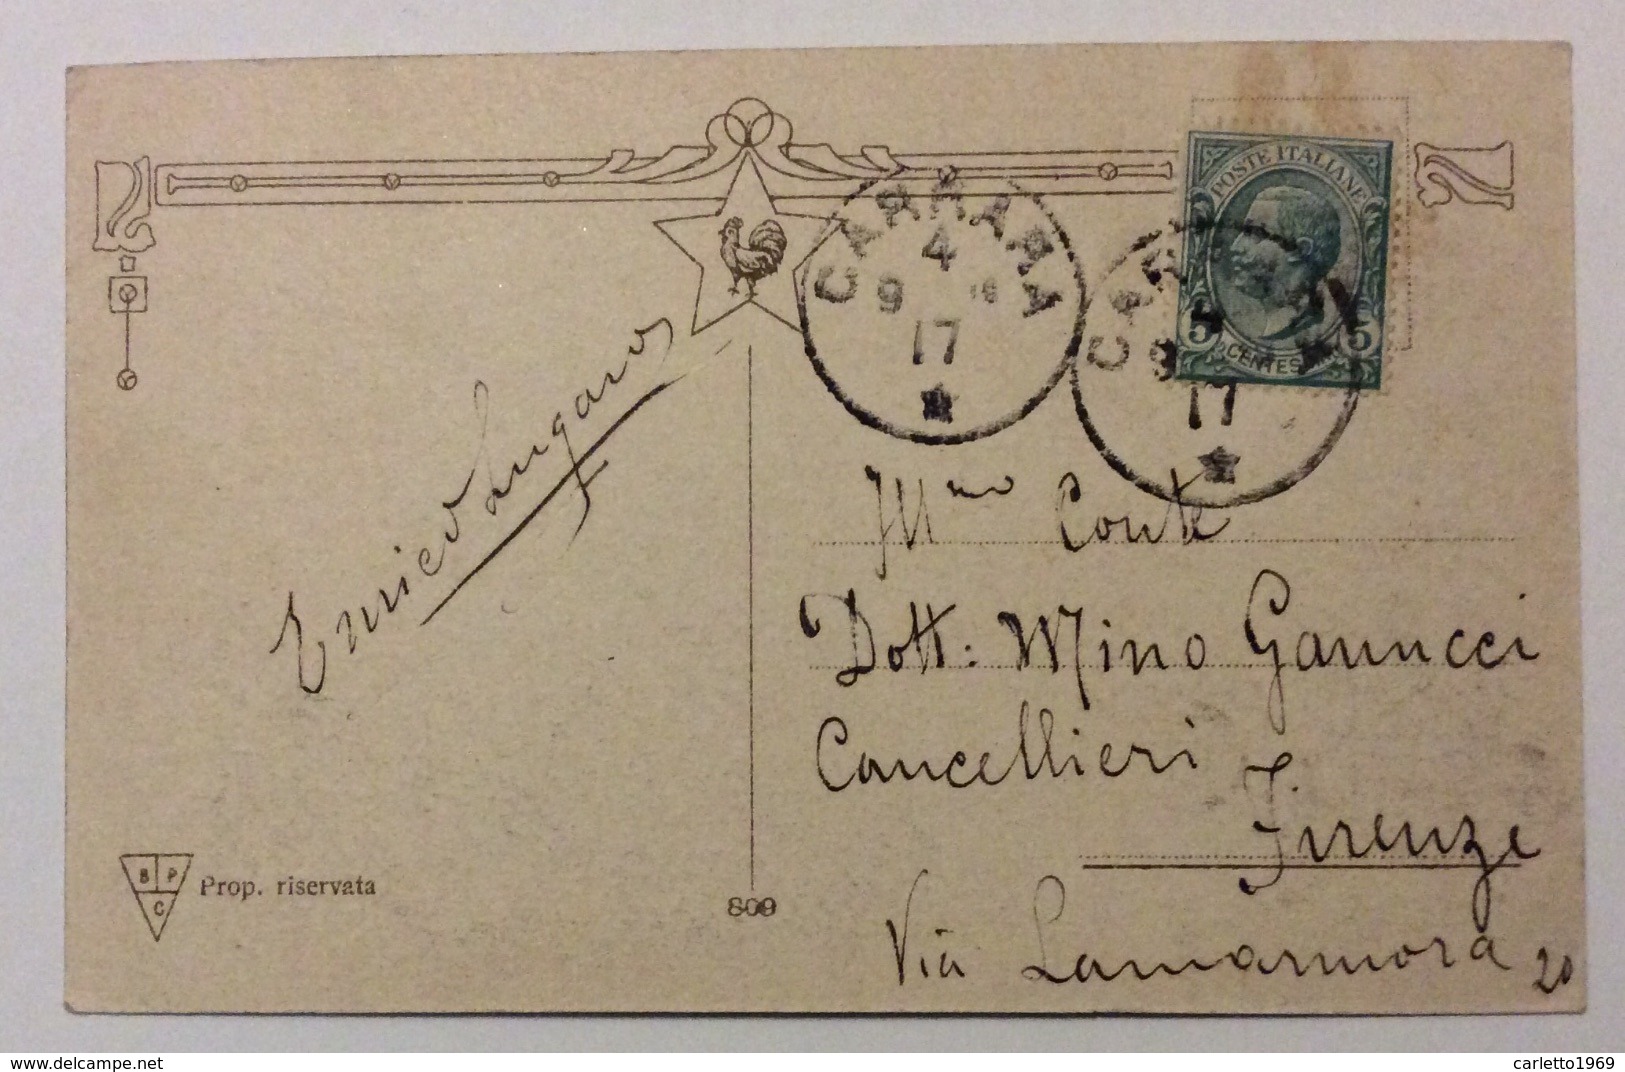 POSTE ITALIANE
5 5
CENTESIMI
CARRARA
4
9 18
17
CAR
9
17
Enrico Lugaro
Ill mo Conte
Dott: Mino Gannucci
Cancellieri
Firenze
Via Lamarmora 20
B P
C
Prop. riservata
809
carletto1969